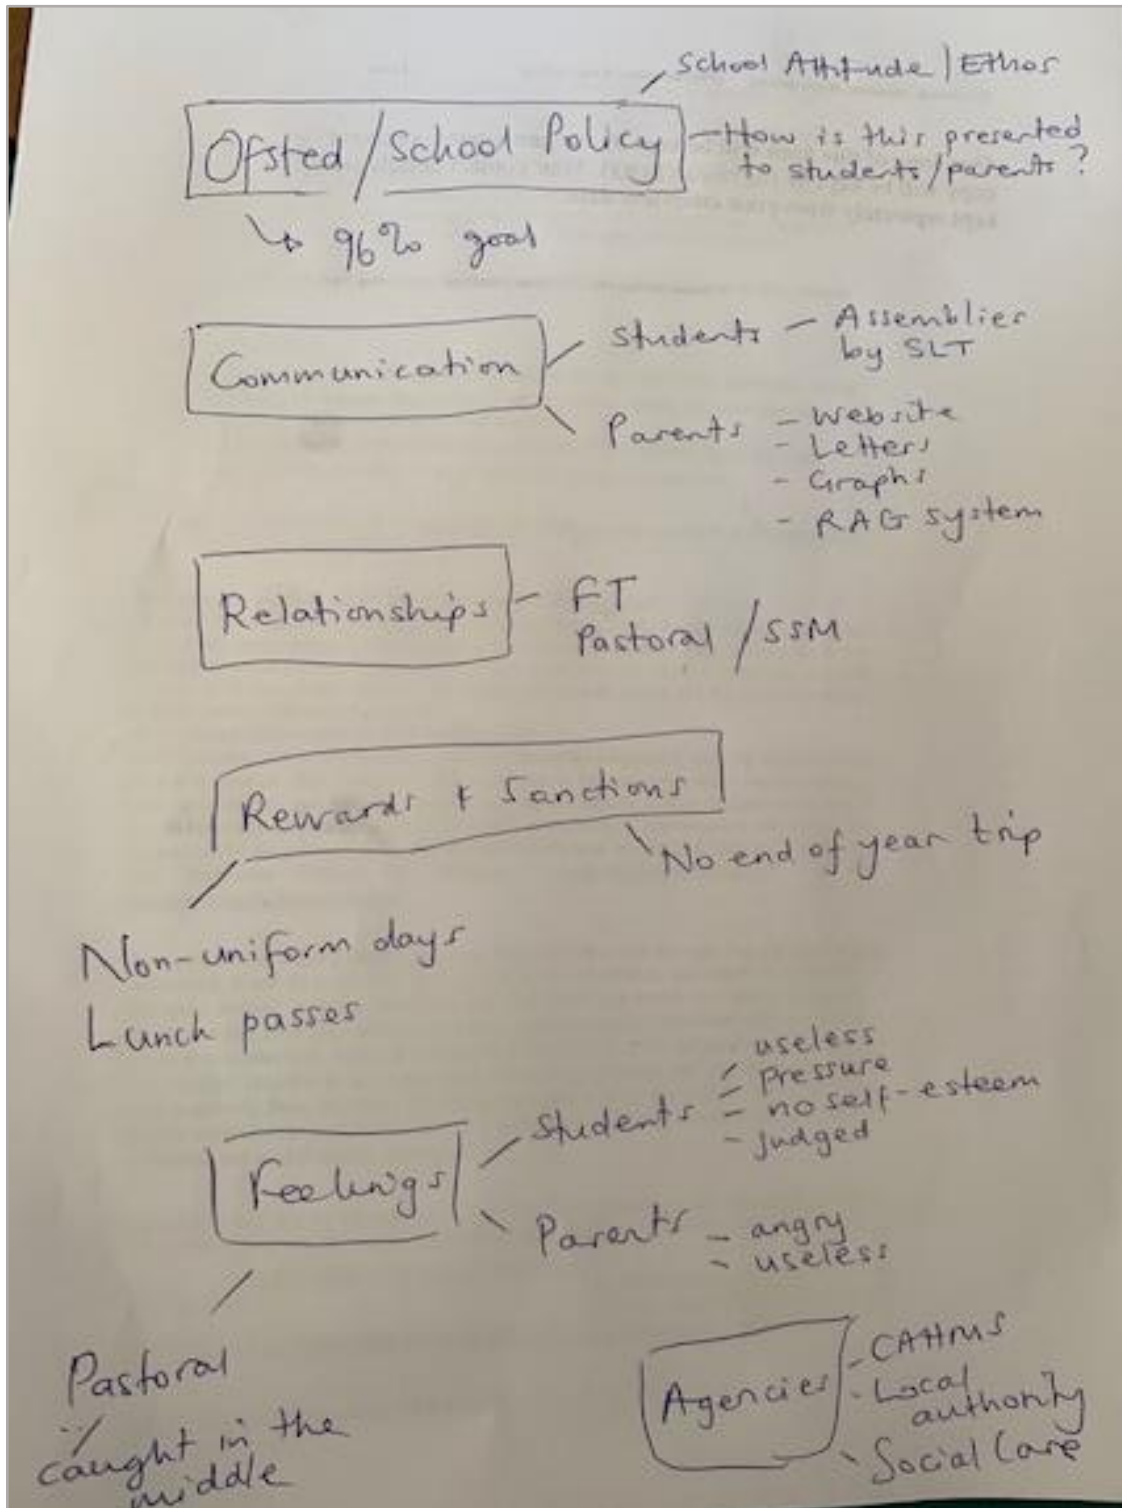 School Attitude | Ethos
Ofsted / School Policy
- How is this presented
to students / parents ?
↳ 96% goal
Communication
Students - Assemblies
by SLT
Parents - Website
- Letters
- Graphs
- RAG system
Relationships - FT
Pastoral / SSM
Rewards + Sanctions
No end of year trip
Non-uniform days
Lunch passes
Feelings
Students - useless
- Pressure
- no self-esteem
- judged
Parents - angry
- useless
Pastoral
caught in the
middle
Agencies - CAHMS
- Local
authority
- Social Care